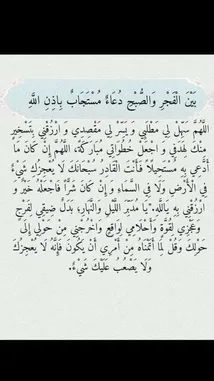 بَيْنَ الْفَجْرِ وَالصُّبْحِ دُعَاءٌ مُسْتَجَابٌ بِإِذْنِ اللَّهِ
اللَّهُمَّ سَهِّلْ لِي مَطْلَبِي وَ يَسِّرْ لِي مَقْصِدِي وَ ارْزُقْنِي بِتَسْخِيرٍ
مِنْكَ لِهَدَفِي وَ اجْعَلْ خُطُوَاتِي مُبَارَكَةً، اللَّهُمَّ إِنْ كَانَ مَا
أَدْعِي بِهِ مُسْتَحِيلاً فَأَنْتَ الْقَادِرُ سُبْحَانَكَ لَا يُعْجِزُكَ شَيْءٌ
فِي الْأَرْضِ وَلَا فِي السَّمَاءِ وَ إِنْ كَانَ شَرًّا فَاجْعَلْهُ خَيْرٌ وَ
ارْزُقْنِي بِهِ يَاللَّه."يَا مُدَبِّرَ اللَّيْلِ وَالنَّهَارِ، بَدِّلْ ضِيقِي لِفَرَجٍ
وَعَجْزِي لِقُوَّةٍ وَأَحْلَامِي لِوَاقِعٍ وَاخْرُجْنِي مِنْ حَوْلِي إِلَى
حَوْلِكَ وَقُلْ لِمَا أَتَمَنَّاهُ مِنْ أَمْرِي أَنْ يَكُونَ فَإِنَّهُ لَا يُعْجِزُكَ
وَلَا يَصْعُبُ عَلَيْكَ شَيْءٌ.